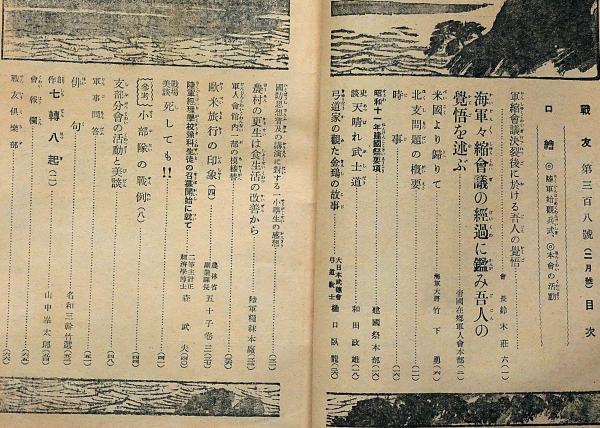 戰友 第三百八號 (二月號) 目次
口繪 ◎陸軍始觀兵式、◎本會の活動
軍縮會議決裂後に於ける吾人の覺悟 會長 鈴木莊六 (一)
海軍々縮會議の經過に鑑み吾人の
覺悟を述ぶ 帝國在鄕軍人會本部 (二)
米國より歸りて 海軍大將 竹下勇 (六)
北支問題の概要
時事
昭和十一年建國祭要項 建國祭本部
史談 天晴れ武士道 和田政雄
弓道家の觀た金鵄の故事 大日本武德會弓道敎士 樋口臥龍
國防思想普及の講演に對する一小學生の感想
農村の更生は食生活の改善から 陸軍糧秣本廠
軍人會館內一部の模樣替
歐米旅行の印象 (四) 農林省副業課長 五十子卷三
陸軍經理學校操科生徒の召募開始に就て 二等主計正經濟學博士 森武夫
戰場美談 死しても!!
(參考) 小部隊の戰例 (八)
支部分會の活動と美談
軍事問答
俳句 名和三幹竹選
創作 七轉八起 (二) 山中峯太郎
會報欄
戰友俱樂部